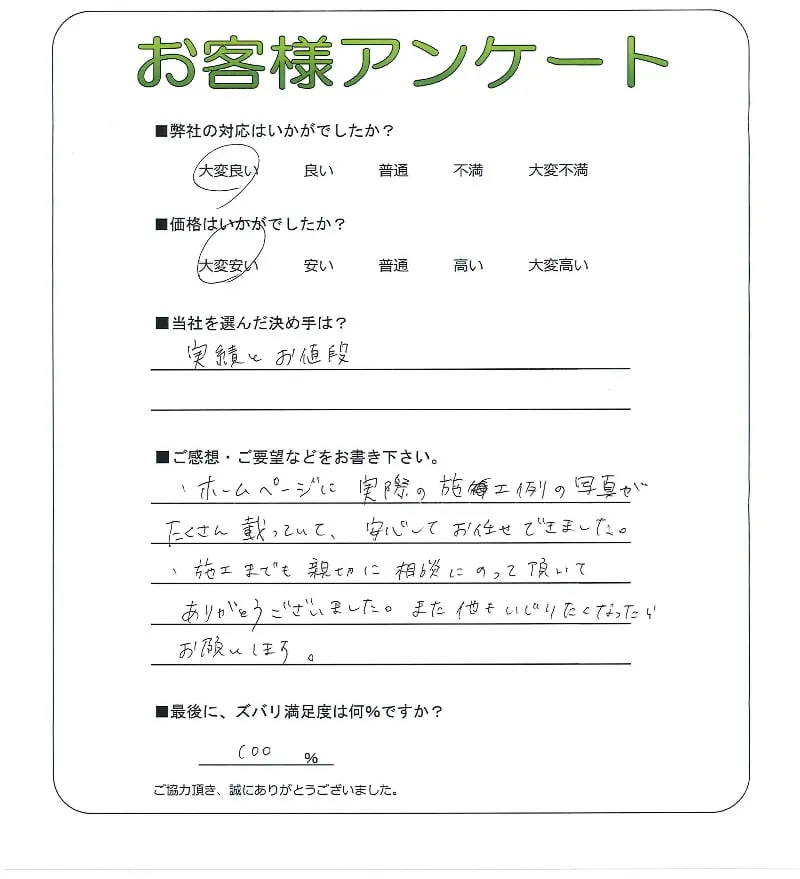 お客様アンケート
■弊社の対応はいかがでしたか？
大変良い 良い 普通 不満 大変不満
■価格はいかがでしたか？
大変安い 安い 普通 高い 大変高い
■当社を選んだ決め手は？
実績とお値段
■ご感想・ご要望などをお書き下さい。
・ホームページに実際の施工例の写真が
たくさん載っていて、安心してお任せできました。
・施工までも親切に相談にのって頂いて
ありがとうございました。また他もいじりたくなったら
お願いします。
■最後に、ズバリ満足度は何%ですか？
100 %
ご協力頂き、誠にありがとうございました。